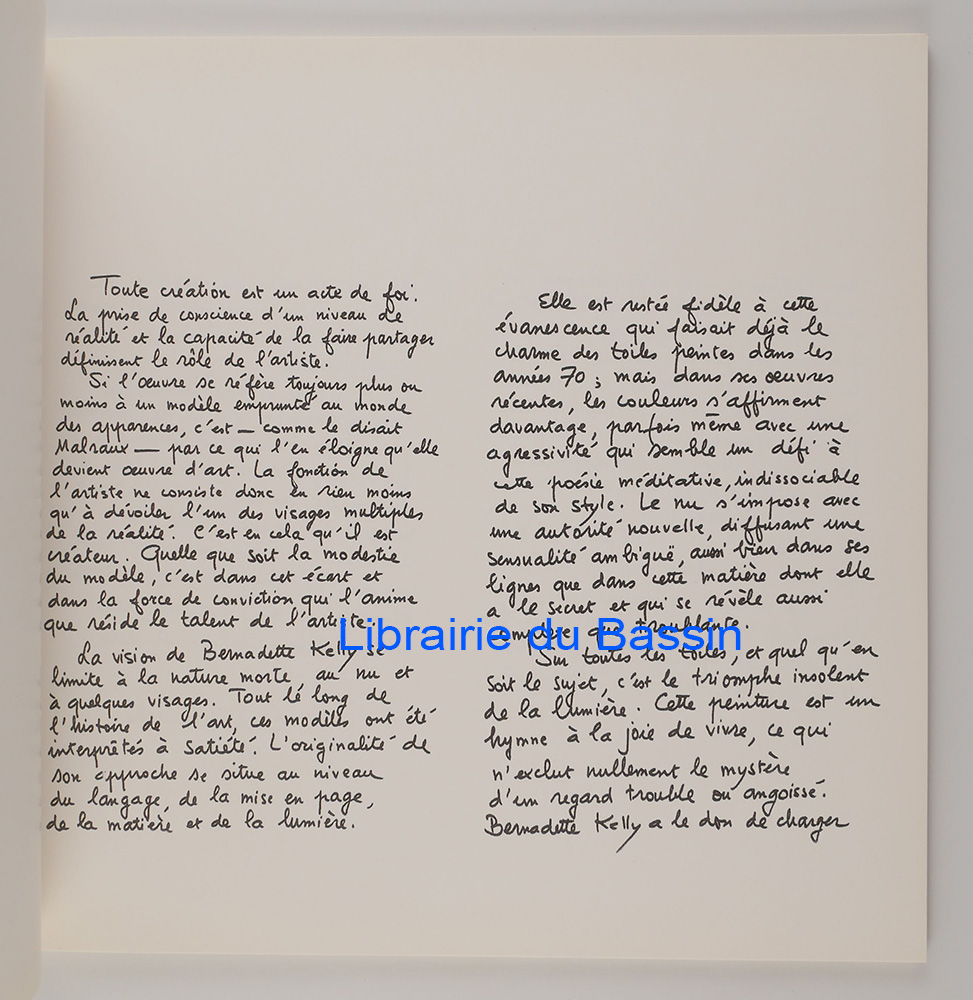 Toute création est un acte de foi.
La prise de conscience d'un niveau de
réalité et la capacité de la faire partager
définissent le rôle de l'artiste.
Si l'œuvre se réfère toujours plus ou
moins à un modèle emprunté au monde
des apparences, c'est — comme le disait
Malraux — par ce qui l'en éloigne qu'elle
devient œuvre d'art. La fonction de
l'artiste ne consiste donc en rien moins
qu'à dévoiler l'un des visages multiples
de la réalité. C'est en cela qu'il est
créateur. Quelle que soit la modestie
du modèle, c'est dans cet écart et
dans la force de conviction qui l'anime
que réside le talent de l'artiste.
La vision de Bernadette Kelly se
limite à la nature morte, au nu et
à quelques visages. Tout le long de
l'histoire de l'art, ces modèles ont été
interprêtés à satiété. L'originalité de
son approche se situe au niveau
du langage, de la mise en page,
de la matière et de la lumière.
Elle est restée fidèle à cette
évanescence qui faisait déjà le
charme des toiles peintes dans les
années 70 ; mais dans ses œuvres
récentes, les couleurs s'affirment
davantage, parfois même avec une
agressivité qui semble un défi à
cette poésie méditative, indissociable
de son style. Le nu s'impose avec
une autorité nouvelle, diffusant une
sensualité ambiguë, aussi bien dans ses
lignes que dans cette matière dont elle
a le secret et qui se révèle aussi
complexe que troublante.
Sur toutes les toiles, et quel qu'en
soit le sujet, c'est le triomphe insolent
de la lumière. Cette peinture est un
hymne à la joie de vivre, ce qui
n'exclut nullement le mystère
d'un regard trouble ou angoissé.
Bernadette Kelly a le don de charger
Librairie du Bassin